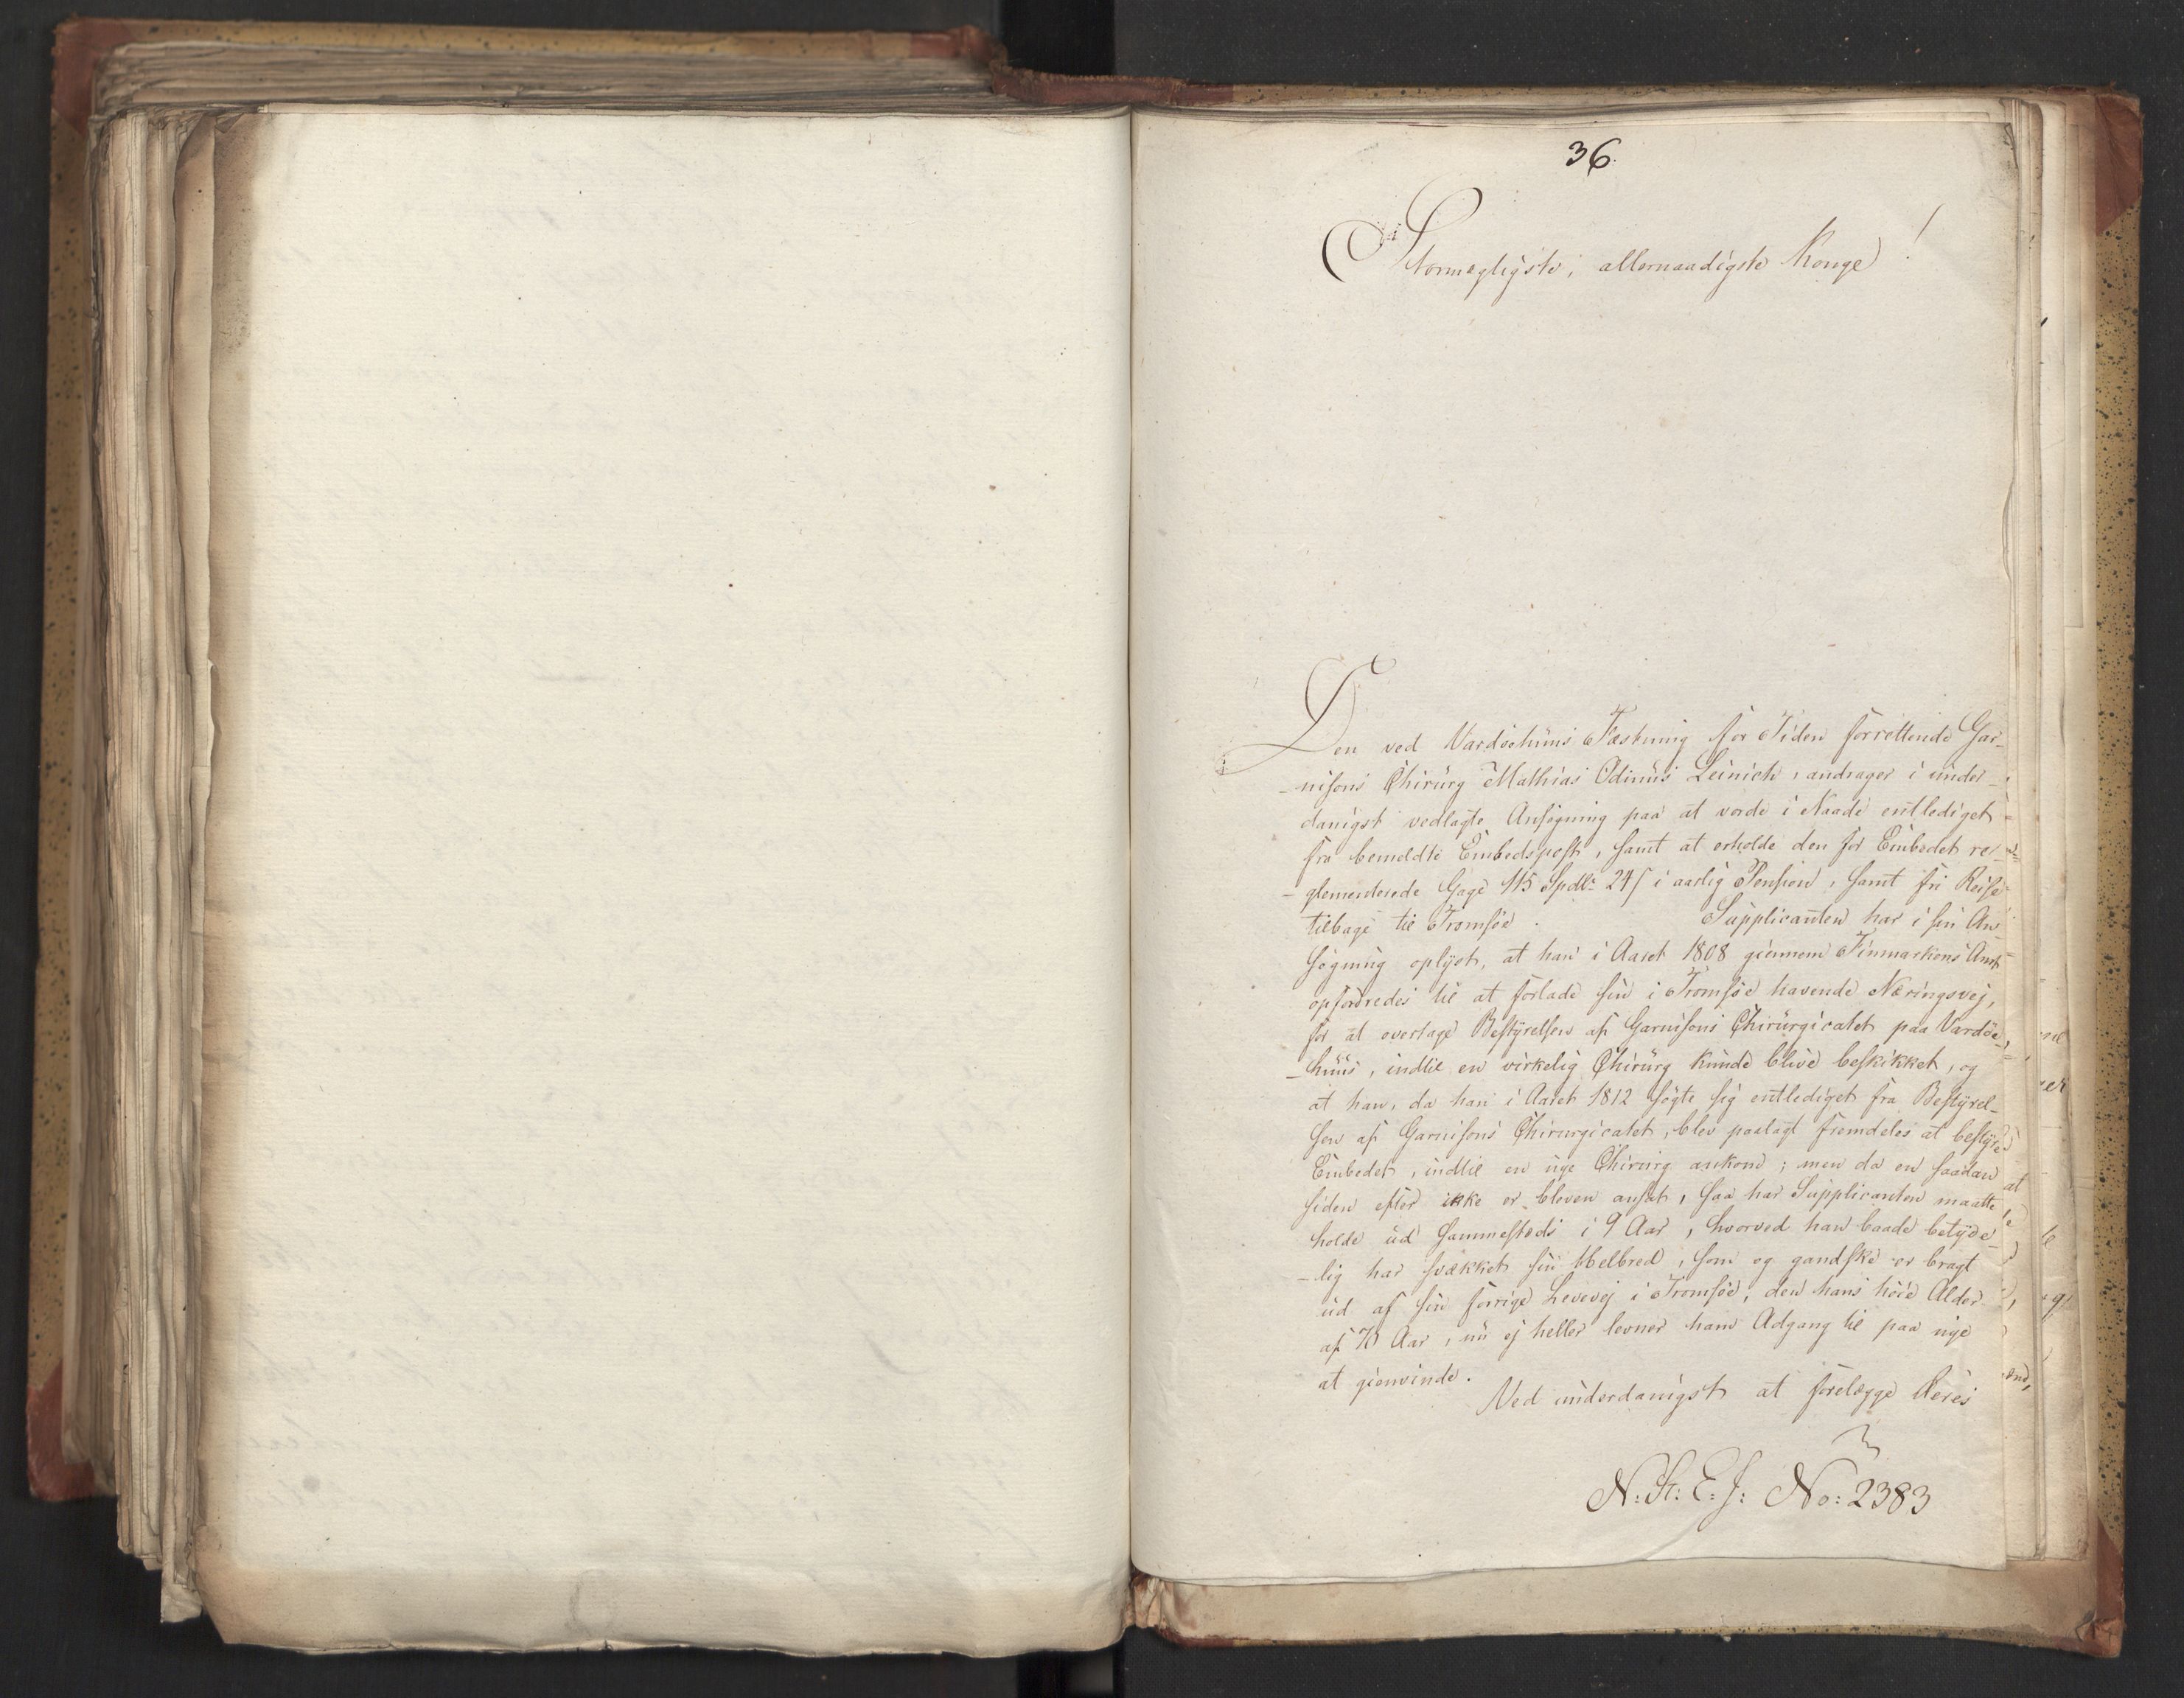 36.
Stormægtigste, allernaadigste Konge!
Den ved Vardöehuus Fæstning for Tiden forrettende Gar-
-nisons Chirurg Mathias Odinus Leinich, andrager i under-
danigst vedlagte Ansögning paa at vorde i Naade entlediget
fra bemeldte Embedspost, samt at erholde den for Embedet re-
-glementerede Gage 115 Spdlr 24 s i aarlig Pension, samt fri Reise
tilbage til Tromsöe. Supplicanten har i sin An-
sögning oplyst, at han i Aaret 1808 giennem Finmarkens Amt
opfordredes til at forlade sin i Tromsöe havende Næringsvej,
for at overtage Bestyrelsen af Garnisons Chirurgicatet paa Vardöe-
-huus, indtil en virkelig Chirurg kunde blive beskikket, og
at han, da han i Aaret 1812 sögte sig entlediget fra Bestyrel-
sen af Garnisons Chirurgicatet, blev paalagt fremdeles at bestyre
Embedet, indtil en nye Chirurg ankom; men da en saadan
siden efter ikke er bleven ansat, saa har Supplicanten maatte
holde ud sammesteds i 9 Aar, hvorved han baade betyde-
-lig har svækket sin Helbred, som og gandske er bragt
ud af sin forrige Levevej i Tromsöe, den hans höie Alder
af Aar, nu ej heller levner ham Adgang til paa nye
at gienvinde.
Ved underdanigst at forelægge Deres
N: K: E: J: No: 2383